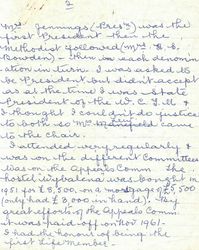 2
Mrs Jennings (Pres'n) was the
first President then the
Methodist followed (Mrs. H. S.
Bowden) - then on each denomin
ation in turn. I was asked to
be President but didn't accept
as at the time I was State
President of the W.C.T.U &
I thought I couldn't do justice
to both so Mrs came
to the Chair.
I attended very regularly &
was on the different Committees
was on the Appeals Comm. the
hostel was bought in
1951 for £8,500 - on a mortgage of £5,500
(only had £3,000 in hand). By
great efforts of the Appeals Comm.
it was paid off in Nov 1961
I had the honour of being the
first Life Member.